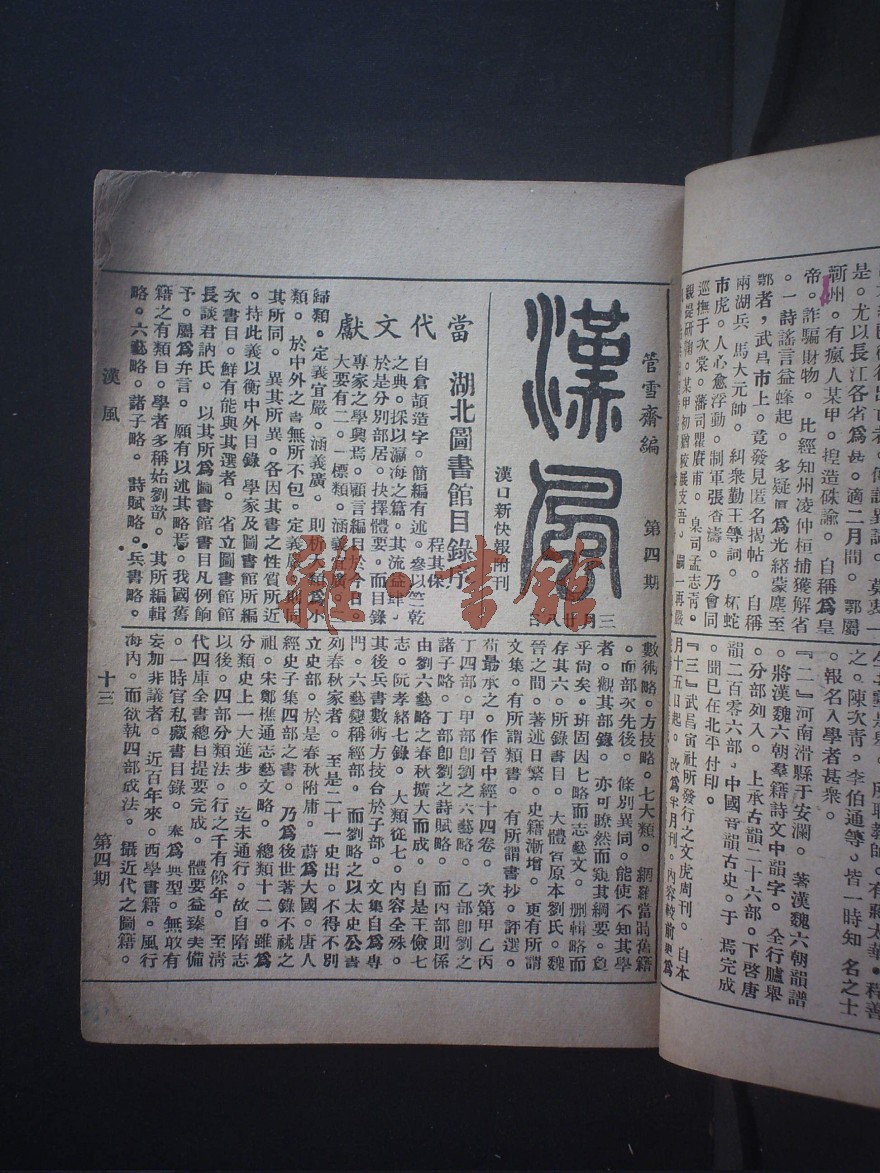 是。尤以長江各省爲甚。適二月間。鄂屬
蘄州。有瘋人某甲。揑造硃諭。自稱爲皇
帝。詐騙財物。比經知州凌仲桓捕獲解省
。一詩謠言益蜂起。多疑爲光緒蒙塵至
鄂者,武昌市上。竟發見匿名揭帖。自稱
兩湖兵馬大元帥。糾衆勤王等詞。杯蛇
市虎。人心愈浮動。制軍張香濤。乃會同
巡撫于次棠。藩司瞿賡甫。臬司孟志靑。
親提研鞫。某甲初猶狡展支吾。嗣一再嚴
之。陳次青。李伯通等。皆一時知名之士
。報名入學者甚衆。
『二』河南滑縣于安瀾。著漢魏六朝韻譜
。將漢魏六朝羣籍詩文中韻字。全行臚舉
。分部列入。上承古韻二十六部。下啓唐
韻二百零六部,中國音韻古史。于焉完成
。聞已在北平付印。
『三』武昌寅社所發行之文虎周刊。自本
月十五日起。改爲半月刊。內容較前更爲
管雪齋編　第四期
漢風
三月廿八日
漢口新快報附刊
當代文獻
湖北圖書館目錄序
程其保
自倉頡造字。簡編有述。參以竺乾
之典。採以瀛海之篇。其流益肆。
於是分別部居。抉擇體要。而目錄
專家之學興焉。顧言編目於今日。
大要有二。一標類。涵義宜廣。一
歸類。定義宜嚴。涵義廣。則析大類爲小
類。於中外之書無所不包。定義嚴。則同
其所同。異其所異。各因其書之性質所近
。持此義以衡中外目錄學家及圖書館所編
次書目。鮮有能與其選者。省立圖書館館
長談君訥氏。以其所爲圖書館書目凡例餉
予。屬爲弁言。願有以述其略焉。我國舊
籍之有類目。學者多稱始劉歆。其所編輯
略。六藝略。諸子略。詩賦略。兵書略。
數術略。方技略。七大類。網羅當時舊籍
。而部次先後。條別異同。能使不知其學
者。觀其部錄。亦可瞭然而窺其綱要。夐
乎尙矣。班固因七略而志藝文。捌輯略而
存其六。所錄書目。大體皆原本劉氏。魏
晉之間。著述日繁。史籍漸增。更有所謂
文集。有所謂類書。有所謂書抄。評選。
荀勗承之。作晉中經十四卷。次第甲乙丙
丁四部。甲部卽劉之六藝略。乙部卽劉之
諸子略。丁部卽劉之詩賦略。而丙部則係
由劉六藝略之春秋擴大而成。自是王儉七
志。阮孝緒七錄。大類從七。內容全殊。
其後兵書數術方技台於子部。文集自爲專
門。六藝變稱經部。而劉略之以太史公書
列春秋家者。至是二十一史出。不得不別
立史部。於是春秋附庸。蔚爲大國。唐人
經史子集四部之書。乃爲後世著錄不祧之
祖。宋鄭樵通志藝文略。總類十二。雖爲
分類史上一大進步。迄未通行。故自隋志
以後。四部分類法。行之千有餘年。至清
代四庫全書總目提要完成。體要益臻美備
。一時官私藏書目錄。奉爲典型。無敢有
妄加非議者。近百年來。西學書籍。風行
海內。而欲執四部成法。攝近代之圖籍。
漢風
十三
第四期
雅一書館